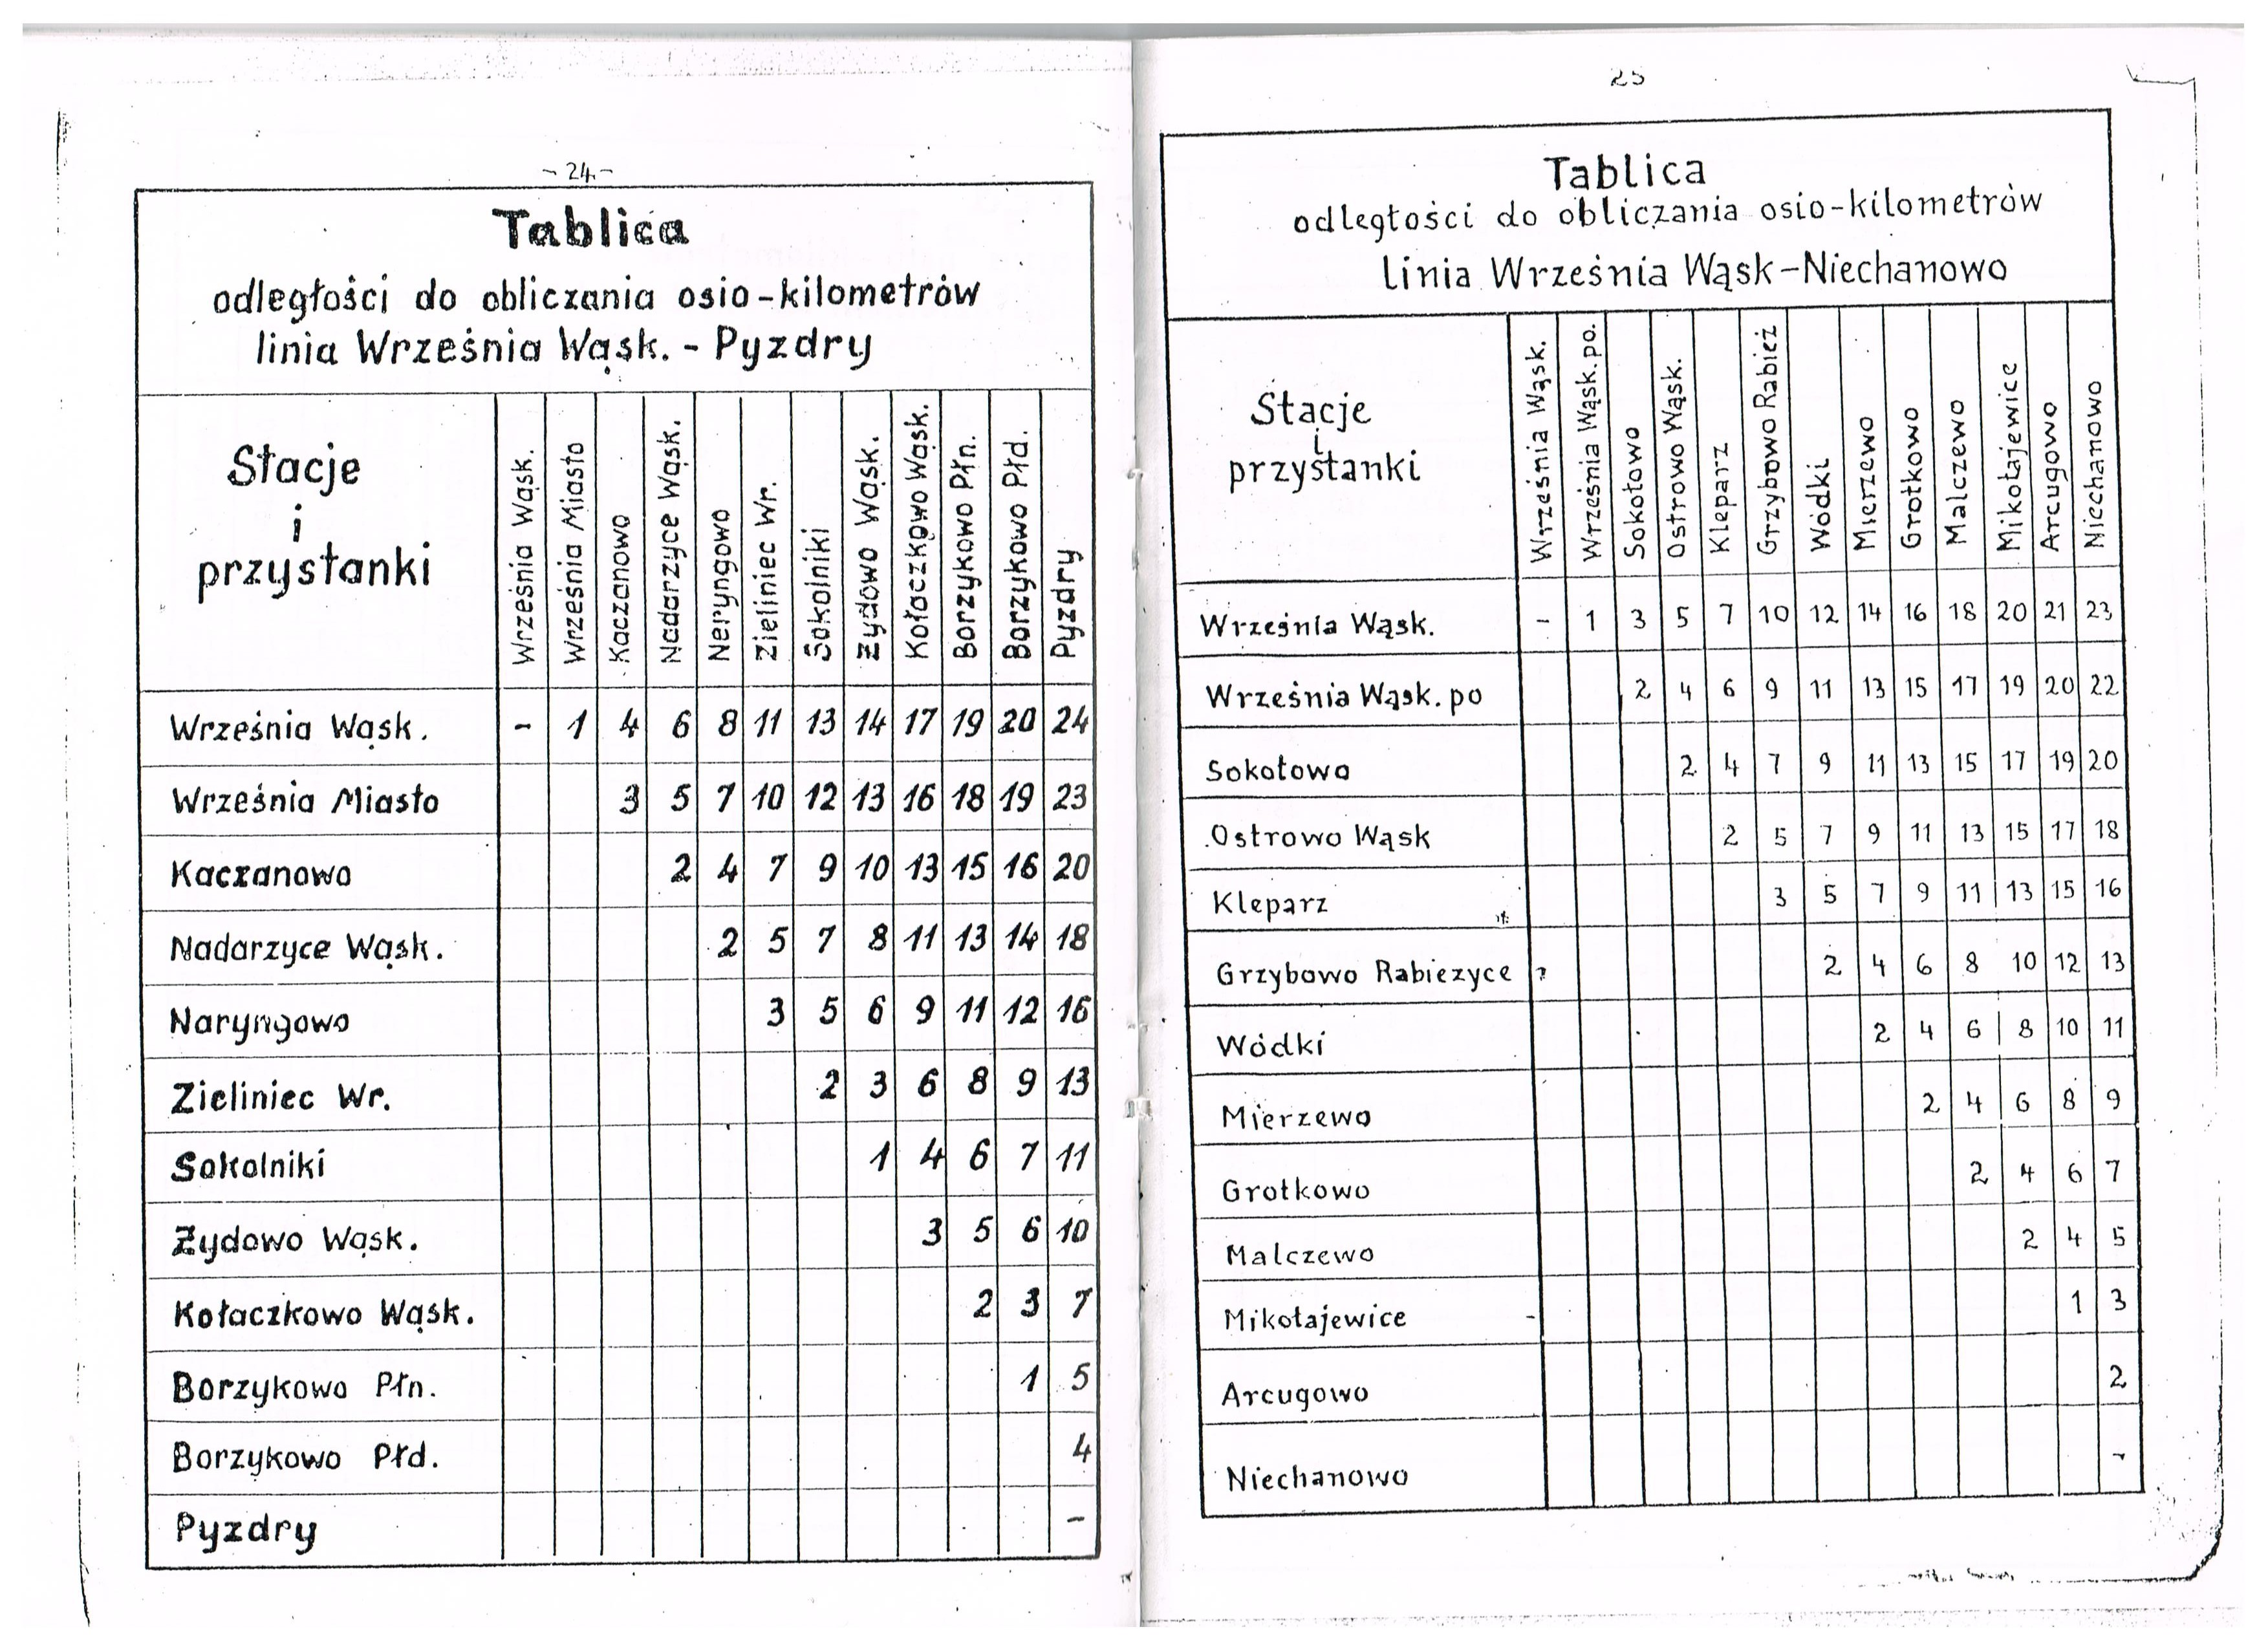 - 24 -
Tablica
odległości do obliczania osio-kilometrów
linia Września Wąsk. - Pyzdry
Stacje
i
przystanki
Września Wąsk.
Września Miasto
Kaczanowo
Nadarzyce Wąsk.
Neryngowo
Zieliniec Wr.
Sokolniki
Żydowo Wąsk.
Kołaczkowo Wąsk.
Borzykowo Płn.
Borzykowo Płd.
Pyzdry
Września Wąsk. - 1 4 6 8 11 13 14 17 19 20 24
Września Miasto 3 5 7 10 12 13 16 18 19 23
Kaczanowo 2 4 7 9 10 13 15 16 20
Nadarzyce Wąsk. 2 5 7 8 11 13 14 18
Naryngowo 3 5 6 9 11 12 16
Zieliniec Wr. 2 3 6 8 9 13
Sokolniki 1 4 6 7 11
Żydowo Wąsk. 3 5 6 10
Kołaczkowo Wąsk. 2 3 7
Borzykowo Płn. 1 5
Borzykowo Płd. 4
Pyzdry -
25
Tablica
odległości do obliczania osio-kilometrów
linia Września Wąsk-Niechanowo
Stacje
i
przystanki
Września Wąsk.
Września Wąsk. po.
Sokołowo
Ostrowo Wąsk.
Kleparz
Grzybowo Rabież
Wódki
Mierzewo
Grotkowo
Malczewo
Mikołajewice
Arcugowo
Niechanowo
Września Wąsk. - 1 3 5 7 10 12 14 16 18 20 21 23
Września Wąsk. po 2 4 6 9 11 13 15 17 19 20 22
Sokołowo 2 4 7 9 11 13 15 17 19 20
Ostrowo Wąsk 2 5 7 9 11 13 15 17 18
Kleparz 3 5 7 9 11 13 15 16
Grzybowo Rabieżyce 2 4 6 8 10 12 13
Wódki 2 4 6 8 10 11
Mierzewo 2 4 6 8 9
Grotkowo 2 4 6 7
Malczewo 2 4 5
Mikołajewice 1 3
Arcugowo 2
Niechanowo -